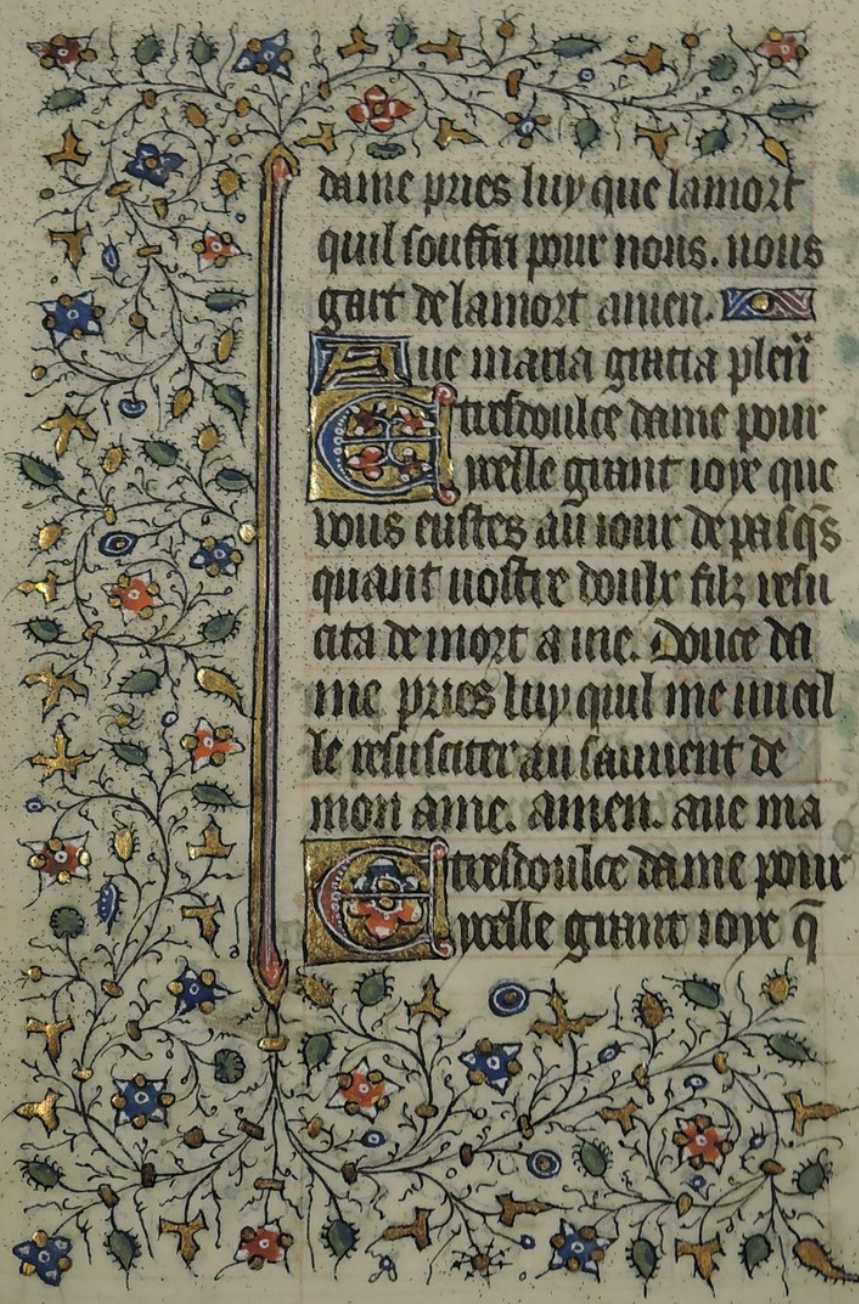 dame pries luy que la mort
quil souffri pour nous. nous
gart de la mort amen.
Aue maria gratia plen̄
E tresdoulce dame pour
ycelle grant ioye que
vous eustes au iour de pasq̄s
quant nostre doulx filz resu
cita de mort a uie. Douce da
me pries luy quil me vueil
le resusciter au sauuent de
mon ame. amen. aue ma
E tresdoulce dame pour
ycelle grant ioye q̄